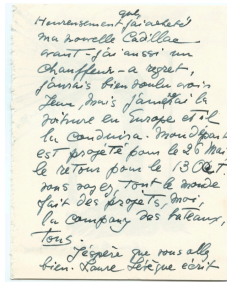 que,
Heureusement j'ai acheté
ma nouvelle Cadillac
avant - j'ai aussi un
chauffeur - a regret,
j'aurais bien voulu avoir
Jene, mais j'amènai la
voiture en Europe et il
la conduira. Mon départ
est projeté pour le 26 Mai
le retour pour le 13 Oct.
vous voyez, tout le monde
fait des projets, moi,
la compang des bateaux,
tous.
J'éspère que vous allez
bien. Laure écrit